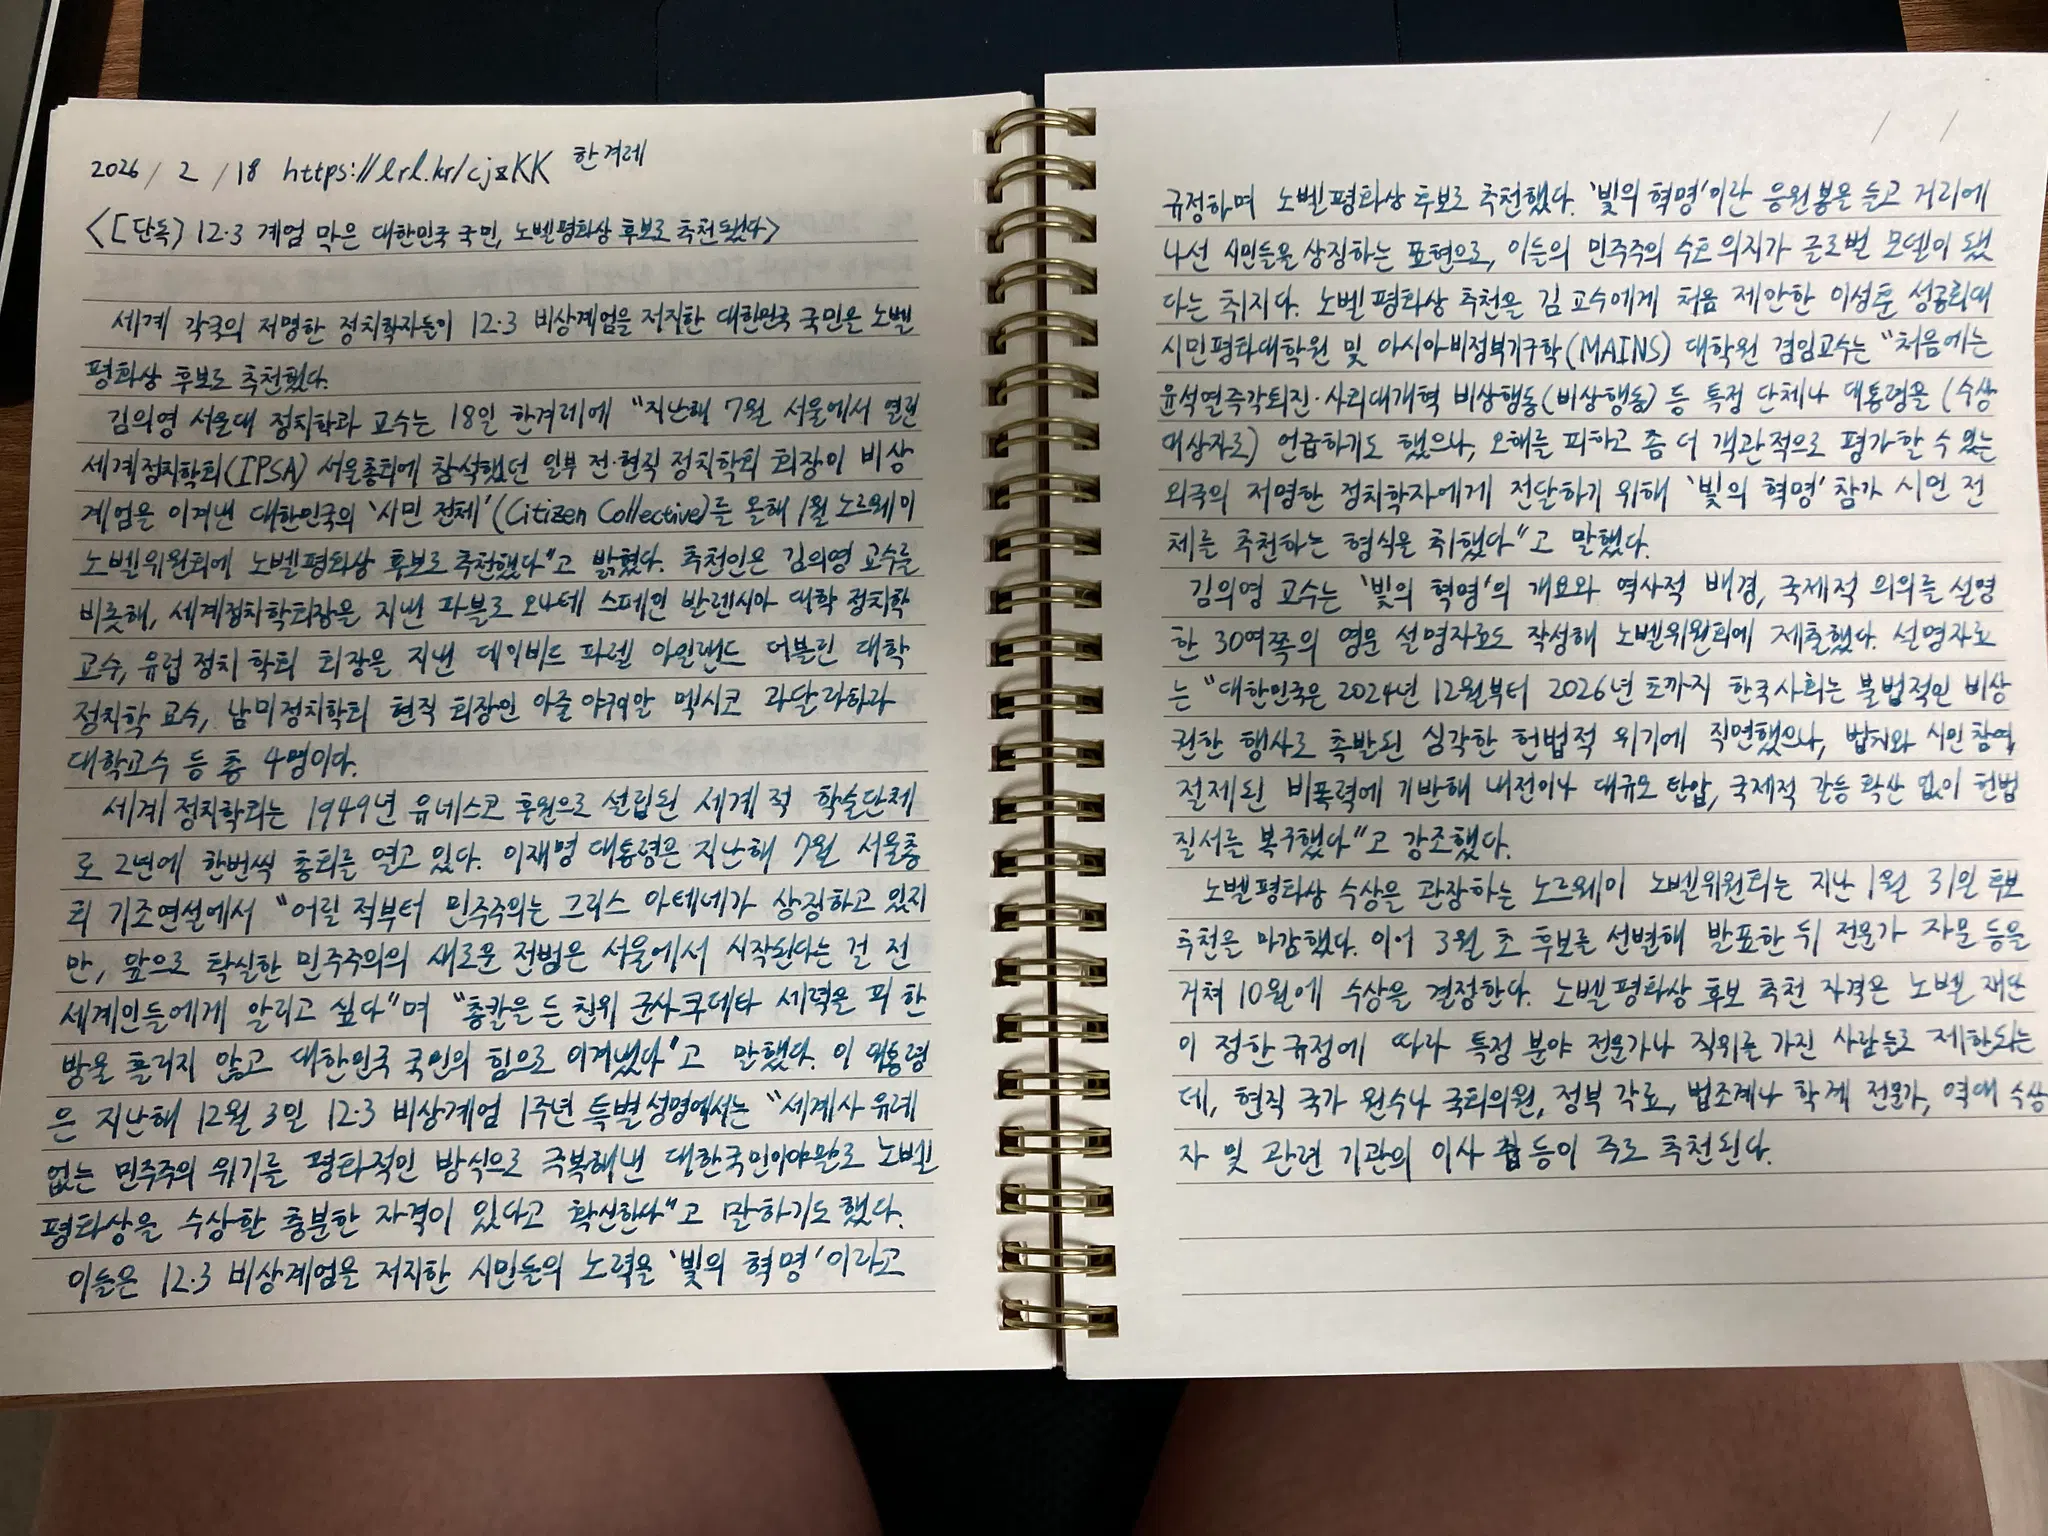 2026 / 2 / 18 https://lrl.kr/cjzKK 한겨레
<[단독] 12·3 계엄 막은 대한민국 국민, 노벨평화상 후보로 추천됐다>
세계 각국의 저명한 정치학자들이 12·3 비상계엄을 저지한 대한민국 국민을 노벨
평화상 후보로 추천했다.
김의영 서울대 정치학과 교수는 18일 한겨레에 "지난해 7월 서울에서 열린
세계정치학회(IPSA) 서울총회에 참석했던 일부 전·현직 정치학회 회장이 비상
계엄을 이겨낸 대한민국의 '시민 전체'(Citizen Collective)를 올해 1월 노르웨이
노벨위원회에 노벨평화상 후보로 추천했다"고 밝혔다. 추천인은 김의영 교수를
비롯해, 세계정치학회장을 지낸 파블로 오냐테 스페인 발렌시아 대학 정치학
교수, 유럽 정치 학회 회장을 지낸 데이비드 파렐 아일랜드 더블린 대학
정치학 교수, 남미정치학회 현직 회장인 아줄 아구알 멕시코 과달라하라
대학교수 등 총 4명이다.
세계 정치학회는 1949년 유네스코 후원으로 설립된 세계적 학술단체
로 2년에 한번씩 총회를 열고 있다. 이재명 대통령은 지난해 7월 서울총
회 기조연설에서 "어릴 적부터 민주주의는 그리스 아테네가 상징하고 있지
만, 앞으로 확실한 민주주의의 새로운 전범은 서울에서 시작된다는 걸 전
세계인들에게 알리고 싶다"며 "총칼을 든 친위 군사쿠데타 세력을 피 한
방울 흘리지 않고 대한민국 국민의 힘으로 이겨냈다"고 말했다. 이 대통령
은 지난해 12월 3일 12·3 비상계엄 1주년 특별성명에서는 "세계사 유례
없는 민주주의 위기를 평화적인 방식으로 극복해낸 대한국민이야말로 노벨
평화상을 수상할 충분한 자격이 있다고 확신한다"고 말하기도 했다.
이들은 12·3 비상계엄을 저지한 시민들의 노력을 '빛의 혁명'이라고
/ /
규정하며 노벨평화상 후보로 추천했다. '빛의 혁명'이란 응원봉을 들고 거리에
나선 시민들을 상징하는 표현으로, 이들의 민주주의 수호 의지가 글로벌 모델이 됐
다는 취지다. 노벨평화상 추천을 김 교수에게 처음 제안한 이성훈 성공회대
시민평화대학원 및 아시아비정부기구학(MAINS) 대학원 겸임교수는 "처음에는
윤석열즉각퇴진·사회대개혁 비상행동(비상행동) 등 특정 단체나 대통령을 (수상
대상자로) 언급하기도 했으나, 오해를 피하고 좀 더 객관적으로 평가할 수 있는
외국의 저명한 정치학자에게 전달하기 위해 '빛의 혁명' 참가 시민 전
체를 추천하는 형식을 취했다"고 말했다.
김의영 교수는 '빛의 혁명'의 개요와 역사적 배경, 국제적 의의를 설명
한 30여쪽의 영문 설명자료도 작성해 노벨위원회에 제출했다. 설명자료
는 "대한민국은 2024년 12월부터 2026년 초까지 한국사회는 불법적인 비상
권한 행사로 촉발된 심각한 헌법적 위기에 직면했으나, 법치와 시민 참여,
절제된 비폭력에 기반해 내전이나 대규모 탄압, 국제적 갈등 확산 없이 헌법
질서를 복구했다"고 강조했다.
노벨평화상 수상을 관장하는 노르웨이 노벨위원회는 지난 1월 31일 후보
추천을 마감했다. 이어 3월 초 후보를 선별해 발표한 뒤 전문가 자문 등을
거쳐 10월에 수상을 결정한다. 노벨평화상 후보 추천 자격은 노벨 재단
이 정한 규정에 따라 특정 분야 전문가나 직위를 가진 사람들로 제한되는
데, 현직 국가 원수나 국회의원, 정부 각료, 법조계나 학계 전문가, 역대 수상
자 및 관련 기관의 이사 등이 주로 추천된다.